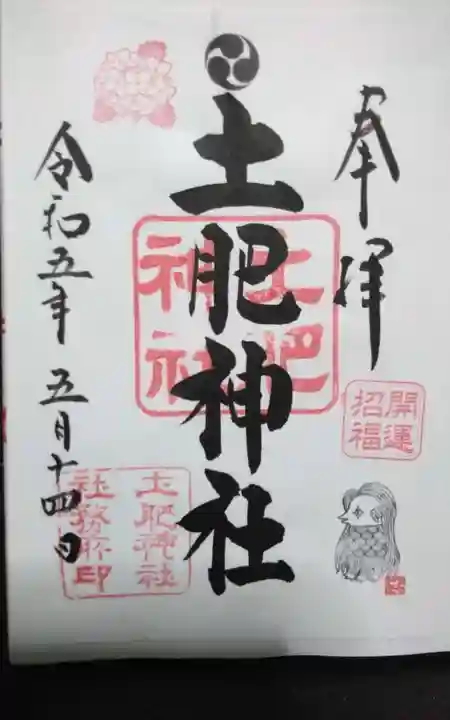 奉拝
開運
招福
土肥神社
土肥
神社
土肥神社
社務所印
令和五年 五月十四日